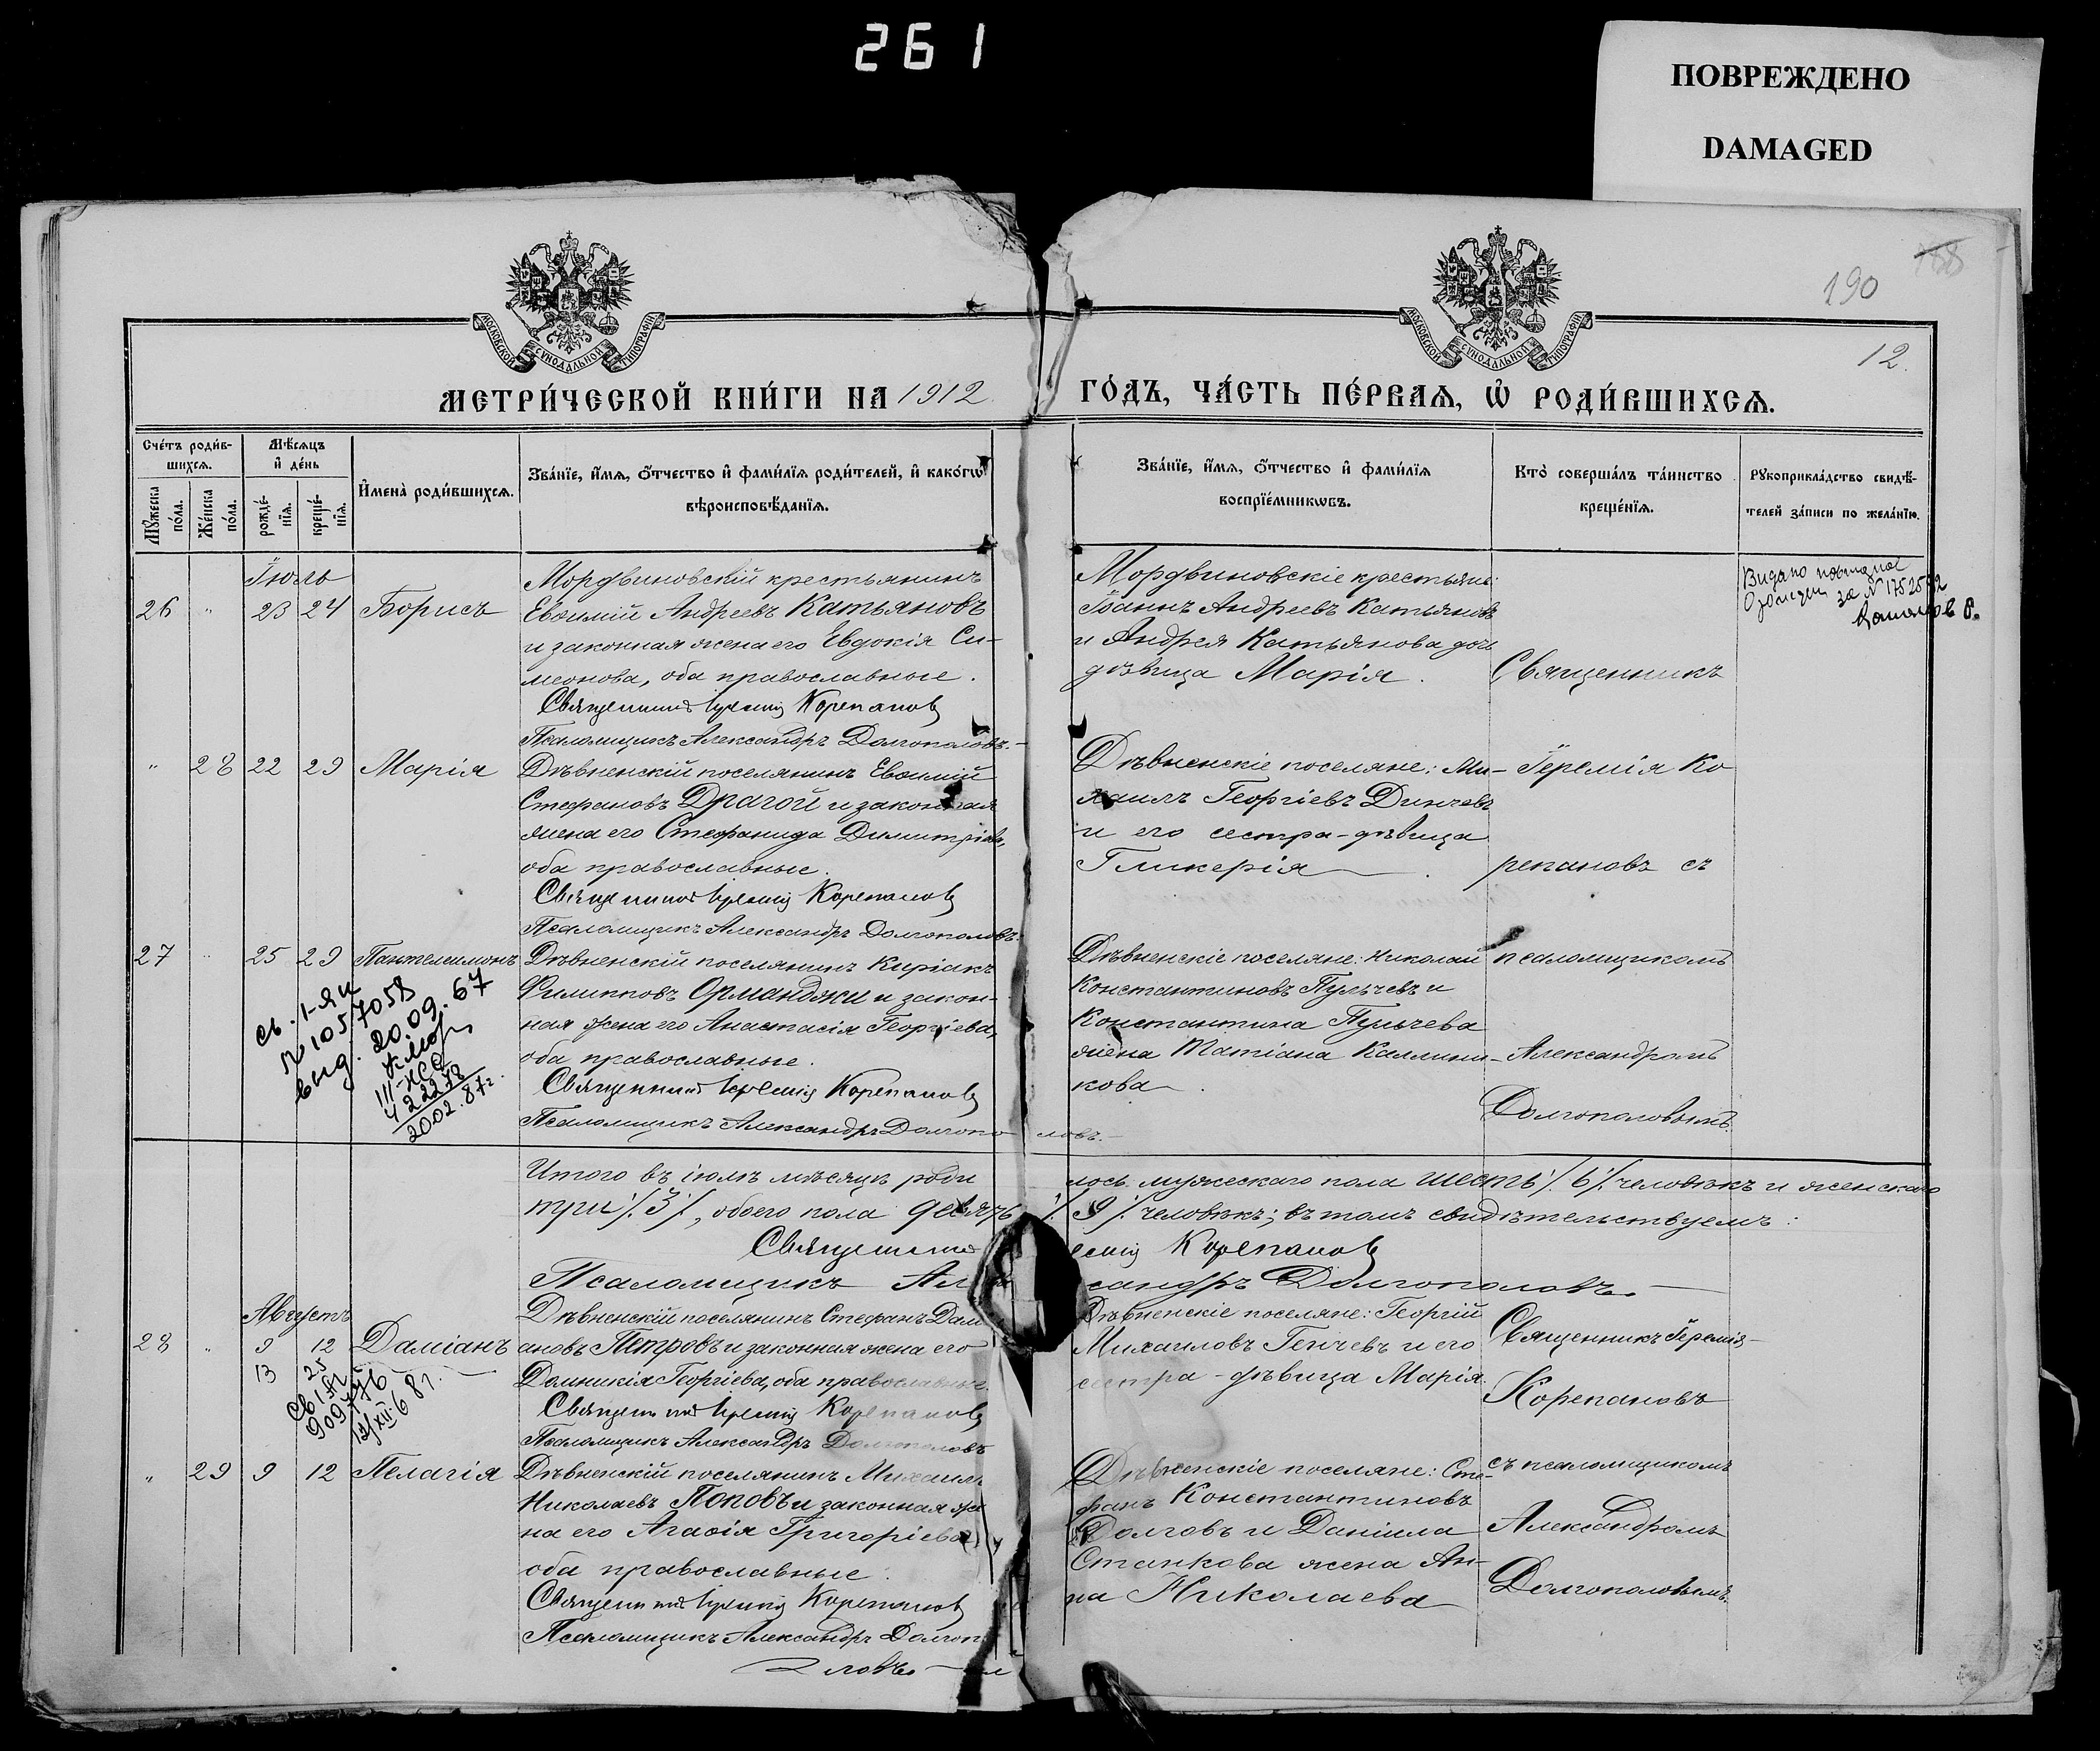 261
ПОВРЕЖДЕНО
DAMAGED
190
188
12.
МОСКОВСКОЙ СѴНОДАЛЬНОЙ ТИПОГРАФІИ
МОСКОВСКОЙ СѴНОДАЛЬНОЙ ТИПОГРАФІИ
МЕТРИ́ЧЕСКОЙ КНИ́ГИ НА 1912 ГО́ДЪ, ЧА́СТЬ ПЕ́РВАѦ, Ѽ РОДИ́ВШИХСѦ.
Сче́тъ роди́в-
шихсѧ.
Мꙋ́жеска по́ла.
Же́нска по́ла.
Мѣ́сѧцъ
и҆ де́нь
рожде́-
нїѧ.
креще́-
нїѧ.
И҆мена̀ роди́вшихсѧ.
Зва́нїе, и҆́мѧ, ѻ҆́тчество и҆ фами́лїѧ роди́телей, и҆ како́гѡ
вѣроисповѣ́данїѧ.
Зва́нїе, и҆́мѧ, ѻ҆́тчество и҆ фами́лїѧ
воспрїе́мникѡвъ.
Кто̀ соверша́лъ та́инство
креще́нїѧ.
Рꙋкоприкла́дство свидѣ́-
телей за́писи по жела́нїю.
Іюль
26 " 23 24 Борисъ
Мордвиновскій крестьянинъ
Евѳимій Андреевъ Катьяновъ
и законная жена его Евдокія Си-
меонова, оба православные.
Священникъ Іеремія Корепановъ
Псаломщикъ Александръ Долгополовъ.
Мордвиновскіе крестьяне:
Іоаннъ Андреевъ Катьяновъ
и Андрея Катьянова дочь
дѣвица Марія.
Священникъ
за № 1752592
" 28 22 29 Марія
Дѣвненскій поселянинъ Евѳимій
Стефановъ Драгой и законная
жена его Стефанида Димитріева,
оба православные.
Священникъ Іеремія Корепановъ
Псаломщикъ Александръ Долгополовъ.
Дѣвненскіе поселяне: Ми-
хаилъ Георгіевъ Динчевъ
и его сестра-дѣвица
Гликерія.
Іеремія Ко
репановъ съ
27 " 25 29 Пантелеимонъ
Дѣвненскій поселянинъ Киріакъ
Филипповъ Орманджи и закон-
ная жена его Анастасія Георгіева,
оба православные.
Священникъ Іеремія Корепановъ
Псаломщикъ Александръ Долгополовъ.
Дѣвненскіе поселяне: Николай
Константиновъ Пульчевъ и
Константина Пульчева
жена Татіана Каллини-
кова.
псаломщикомъ
Александромъ
Долгополовымъ.
св. I-ЯИ
№ 1057058
выд. 20.09.67
III-ЖС
422278
2002.87г.
Итого въ іюлѣ мѣсяцѣ родилось мужескаго пола шесть /.6/. человѣкъ и женскаго
три /.3/., обоего пола девять /.9/. человѣкъ; въ томъ свидѣтельствуемъ:
Священникъ Іеремія Корепановъ
Псаломщикъ Александръ Долгополовъ.
Августъ
28 " 9 12 Даміанъ
13 25
Дѣвненскій поселянинъ Стефанъ Дами
ановъ Петровъ и законная жена его
Домникія Георгіева, оба православные.
Священникъ Іеремія Корепановъ
Псаломщикъ Александръ Долгополовъ
Дѣвненскіе поселяне: Георгій
Михаиловъ Генчевъ и его
сестра-дѣвица Марія.
Священникъ Іеремія
Корепановъ
" 29 9 12 Пелагія
Дѣвненскій поселянинъ Михаилъ
Николаевъ Поповъ и законная же
на его Агаѳія Григоріева,
оба православные.
Священникъ Іеремія Корепановъ
Псаломщикъ Александръ Долгопо
ловъ.
Дѣвненскіе поселяне: Сте-
фанъ Константиновъ
Долговъ и Даніила
Станкова жена Ан-
на Николаева
съ псаломщикомъ
Александромъ
Долгополовымъ.